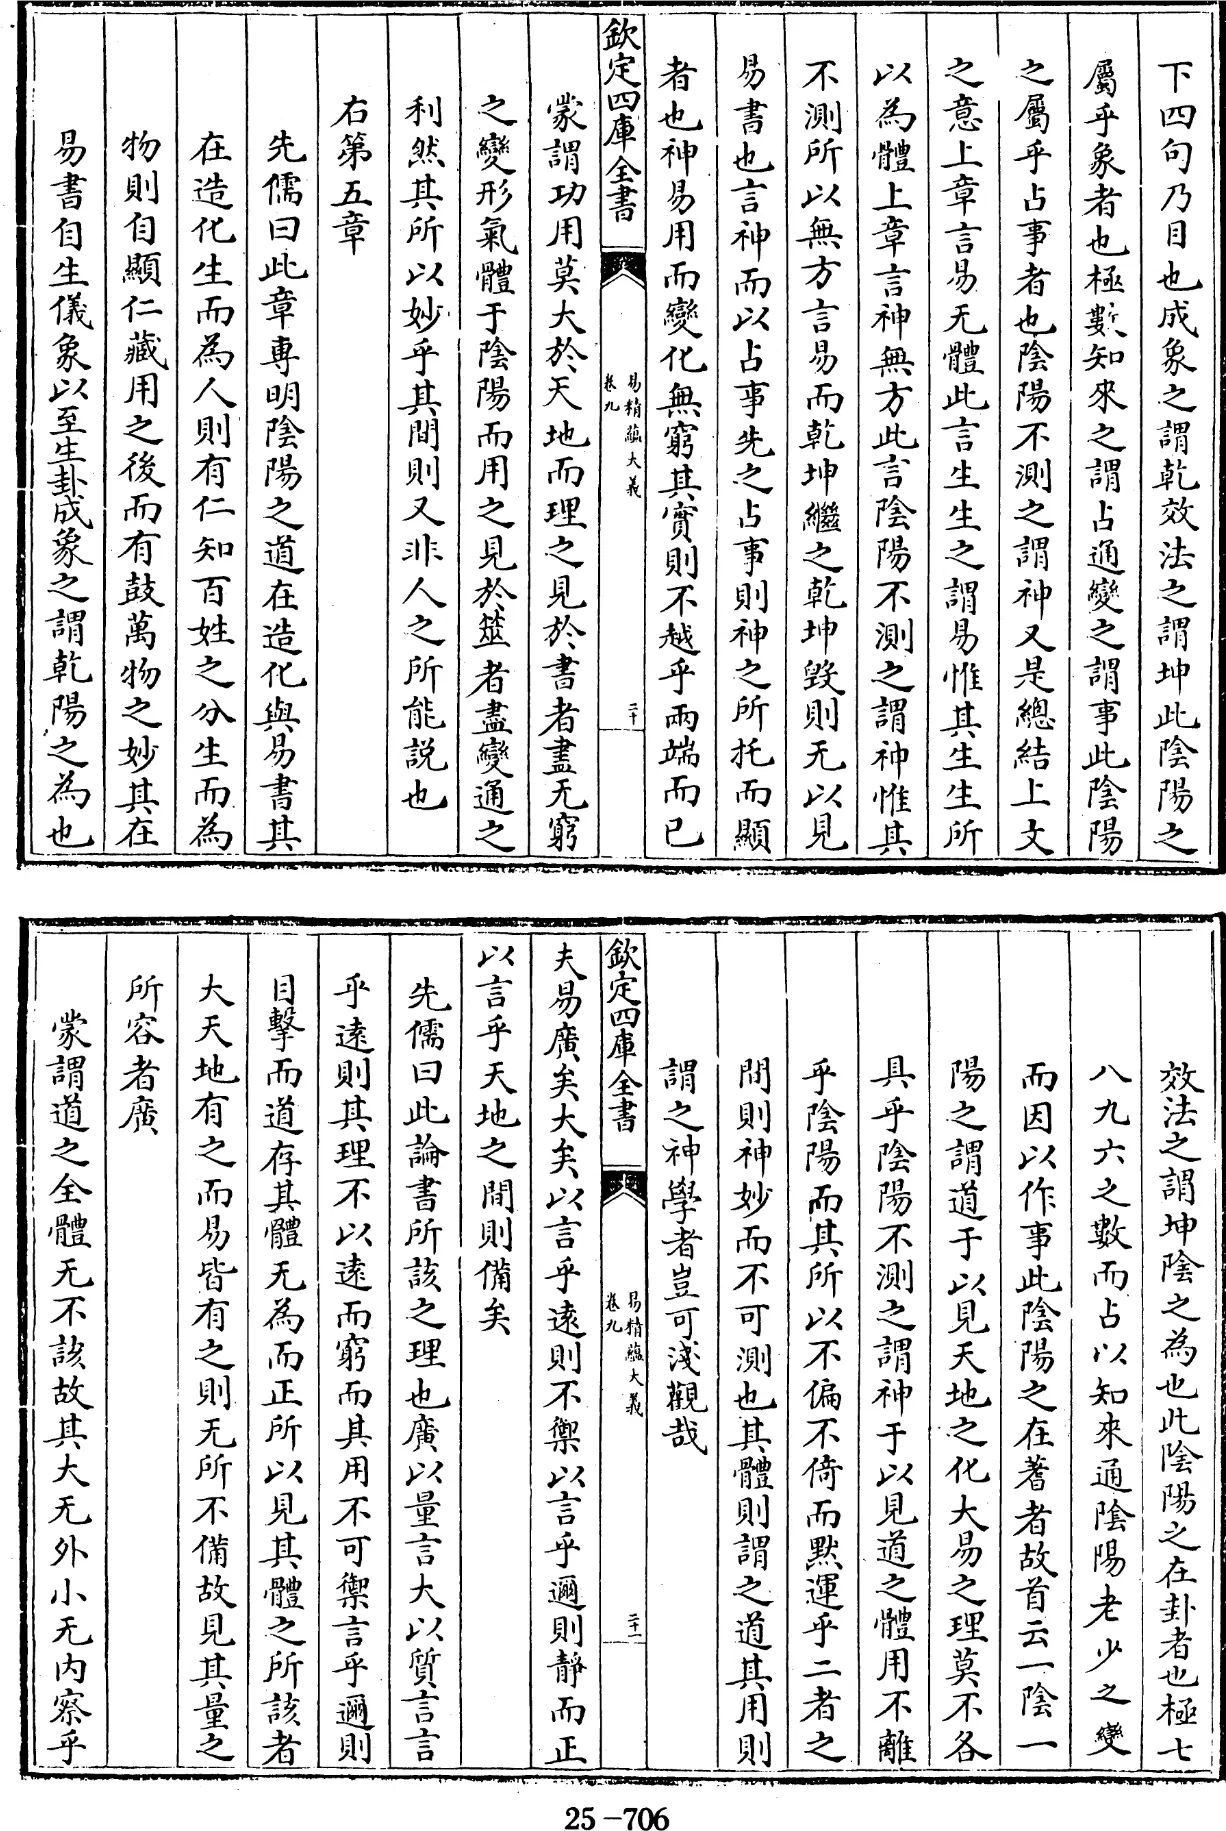 下四句乃目也成象之謂乾效法之謂坤此陰陽之
屬乎象者也極數知來之謂占通變之謂事此陰陽
之屬乎占事者也陰陽不測之謂神又是總結上文
之意上章言易无體此言生生之謂易惟其生生所
以為體上章言神無方此言陰陽不測之謂神惟其
不測所以無方言易而乾坤繼之乾坤毀則无以見
易書也言神而以占事先之占事則神之所托而顯
者也神易用而變化無窮其實則不越乎兩端而已
欽定四庫全書
易精蘊大義
卷九
二十
蒙謂功用莫大於天地而理之見於書者盡无窮
之變形氣體于陰陽而用之見於筮者盡變通之
利然其所以妙乎其間則又非人之所能説也
右第五章
先儒曰此章專明陰陽之道在造化與易書其
在造化生而為人則有仁知百姓之分生而為
物則自顯仁藏用之後而有鼓萬物之妙其在
易書自生儀象以至生卦成象之謂乾陽之為也
效法之謂坤陰之為也此陰陽之在卦者也極七
八九六之數而占以知來通陰陽老少之變
而因以作事此陰陽之在蓍者故首云一陰一
陽之謂道于以見天地之化大易之理莫不各
具乎陰陽不測之謂神于以見道之體用不離
乎陰陽而其所以不偏不倚而默運乎二者之
間則神妙而不可測也其體則謂之道其用則
謂之神學者豈可淺觀哉
欽定四庫全書
易精蘊大義
卷九
二十一
夫易廣矣大矣以言乎遠則不禦以言乎邇則靜而正
以言乎天地之間則備矣
先儒曰此論書所該之理也廣以量言大以質言言
乎遠則其理不以遠而窮而其用不可禦言乎邇則
目擊而道存其體无為而正所以見其體之所該者
大天地有之而易皆有之則无所不備故見其量之
所容者廣
蒙謂道之全體无不該故其大无外小无内察乎
25-706